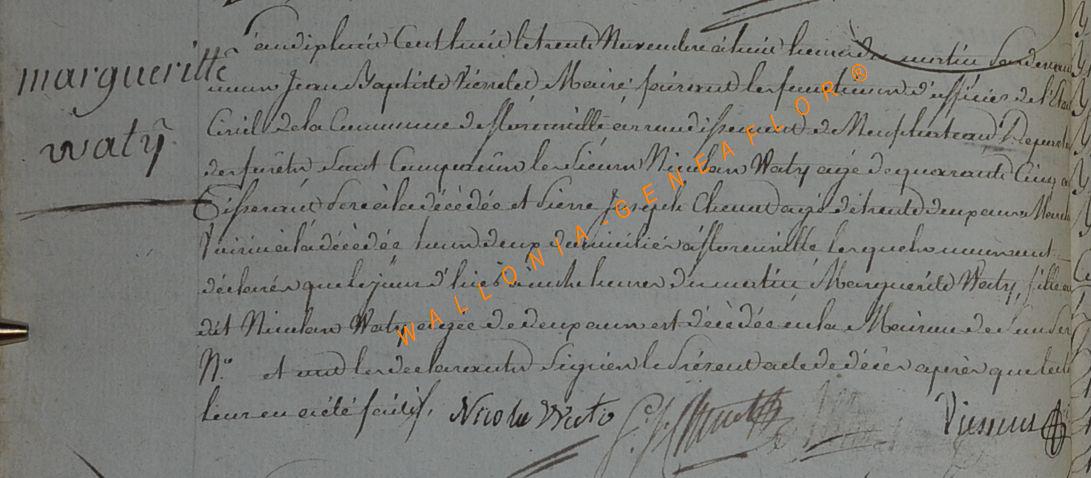 margueritte
waty
L'an dix huit Cent huit le trente Novembre à huit heures du matin Pardevant
nous Jean Baptiste Maire faisant les fonctions d'officier de l'Etat
Civil de la Commune de florenville arrondissement de Neufchateau Departe
des forêts Sont Comparus le Sieur Nicolas Waty agé de quarante Cinq a
Tisserand Pere à la décédée et Pierre Joseph agé de trente deux ans
Voisin à la décédée tous deux domiciliés à florenville lesquels nous ont
déclarés que le jour d'hier à heures du matin Marguerite Waty, fille
dit Nicolas Waty agée de deux ans est décédée en la Maison
N.º et ont les declarants Signés le Présent acte de décès après que
leur en a été faite,
Nicola Wato
WALLONIA-GENEAFLOR®